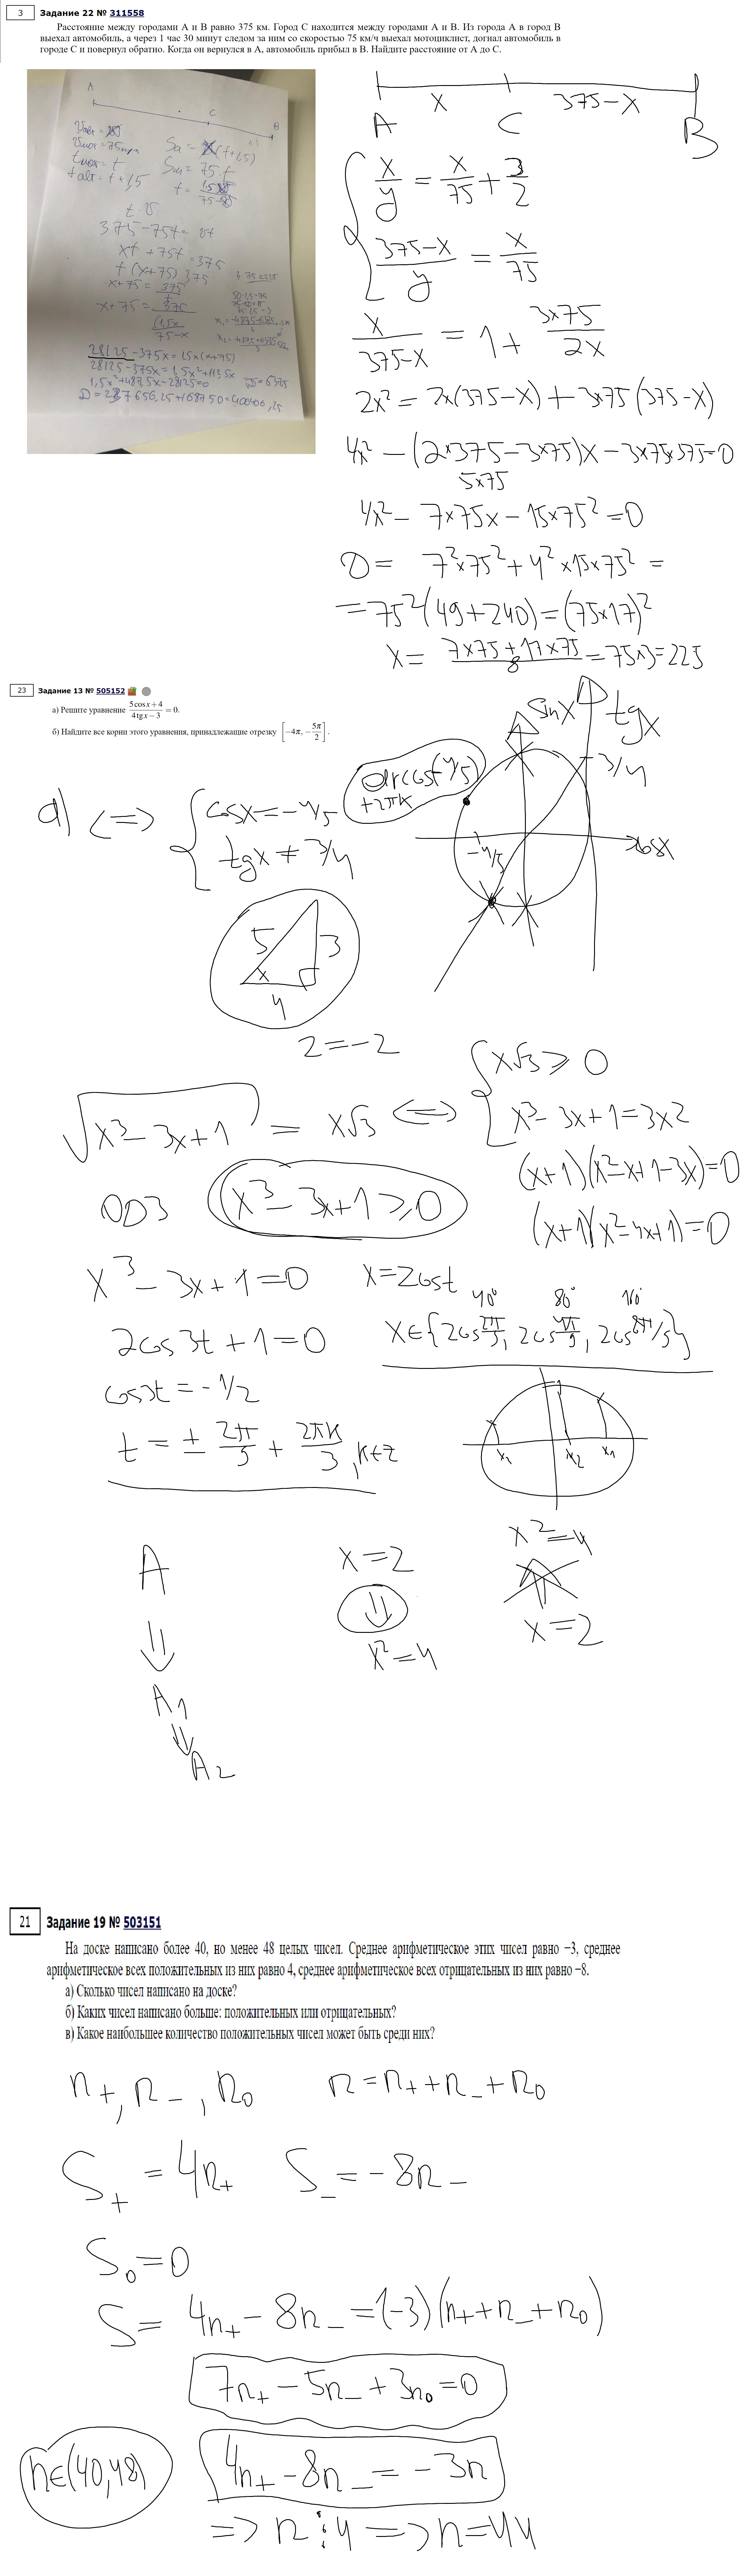 3 Задание 22 № 311558
Расстояние между городами А и В равно 375 км. Город С находится между городами А и В. Из города А в город В
выехал автомобиль, а через 1 час 30 минут следом за ним со скоростью 75 км/ч выехал мотоциклист, догнал автомобиль в
городе С и повернул обратно. Когда он вернулся в А, автомобиль прибыл в В. Найдите расстояние от А до С.
A
C
B
Sм = 75·t
tавт = t + 1,5
375 - 75t =
xt + 75t = 375
t(x+75) 375
x+75 = 375
28125 - 375x = 1,5x(x+75)
A x C 375-x B
x/y = x/75 + 3/2
(375-x)/y = x/75
x/(375-x) = 1 + 3×75/2x
2x² = 2x(375-x) + 3×75(375-x)
4x² - (2×375-3×75)x - 3×75×375=0
5×75
4x² - 7×75x - 15×75² = 0
D = 7²×75² + 4²×15×75² =
= 75²(49+240) = (75×17)²
x = (7×75+17×75)/8 = 75×3 = 225
23 Задание 13 № 505152
а) Решите уравнение (5cos x + 4)/(4tg x − 3) = 0.
б) Найдите все корни этого уравнения, принадлежащие отрезку [−4π, −5π/2].
sinx tgx
arccos(-4/5)
+2πk
3/4
cosx
-4/5
а) <=> { cosx = -4/5
tgx ≠ 3/4
5 3
x
4
2 = -2
√(x³-3x+1) = x√3 <=> { x√3 ≥ 0
x³-3x+1=3x²
(x+1)(x²-x+1-3x)=0
ОДЗ x³-3x+1≥0
(x+1)(x²-4x+1)=0
x³-3x+1=0 x=2cost
40° 80° 160°
2cos3t+1=0
x∈{2cos 2π/9, 2cos 4π/9, 2cos 8π/9}
cos3t = -1/2
t = ± 2π/9 + 2πk/3, k∈Z
x₁ x₂ x₁
A
⇓
A₁
⇓
A₂
x=2
⇓
x²=4
x²=4
⇑
x=2
21 Задание 19 № 503151
На доске написано более 40, но менее 48 целых чисел. Среднее арифметическое этих чисел равно −3, среднее
арифметическое всех положительных из них равно 4, среднее арифметическое всех отрицательных из них равно −8.
а) Сколько чисел написано на доске?
б) Каких чисел написано больше: положительных или отрицательных?
в) Какое наибольшее количество положительных чисел может быть среди них?
n₊, n₋, n₀ n = n₊+n₋+n₀
S₊ = 4n₊ S₋ = -8n₋
S₀ = 0
S = 4n₊ - 8n₋ = (-3)(n₊+n₋+n₀)
7n₊ - 5n₋ + 3n₀ = 0
n∈(40,48) 4n₊ - 8n₋ = -3n
=> n ⋮ 4 => n=44